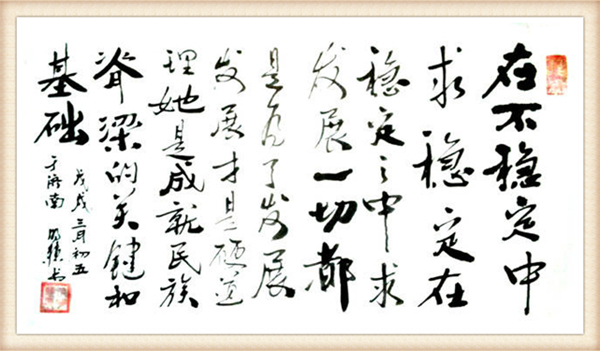 在不稳定中
求稳定在
稳定之中求
发展一切都
是为了发展
发展才是硬道
理她是成就民族
脊梁的关键和
基础
戊戌三月初五
于济南 书